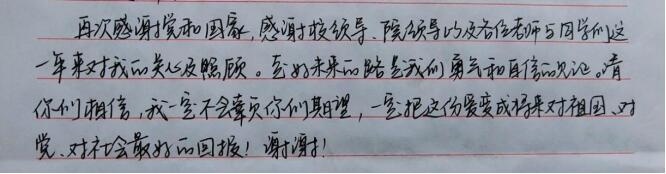 再次感谢党和国家,感谢校领导、院领导以及各位老师与同学们这
一年来对我的关心及照顾。美好未来的路是我们勇气和自信的见证。请
你们相信,我一定不会辜负你们期望,一定把这份爱变成将来对祖国、对
党、对社会最好的回报!谢谢!